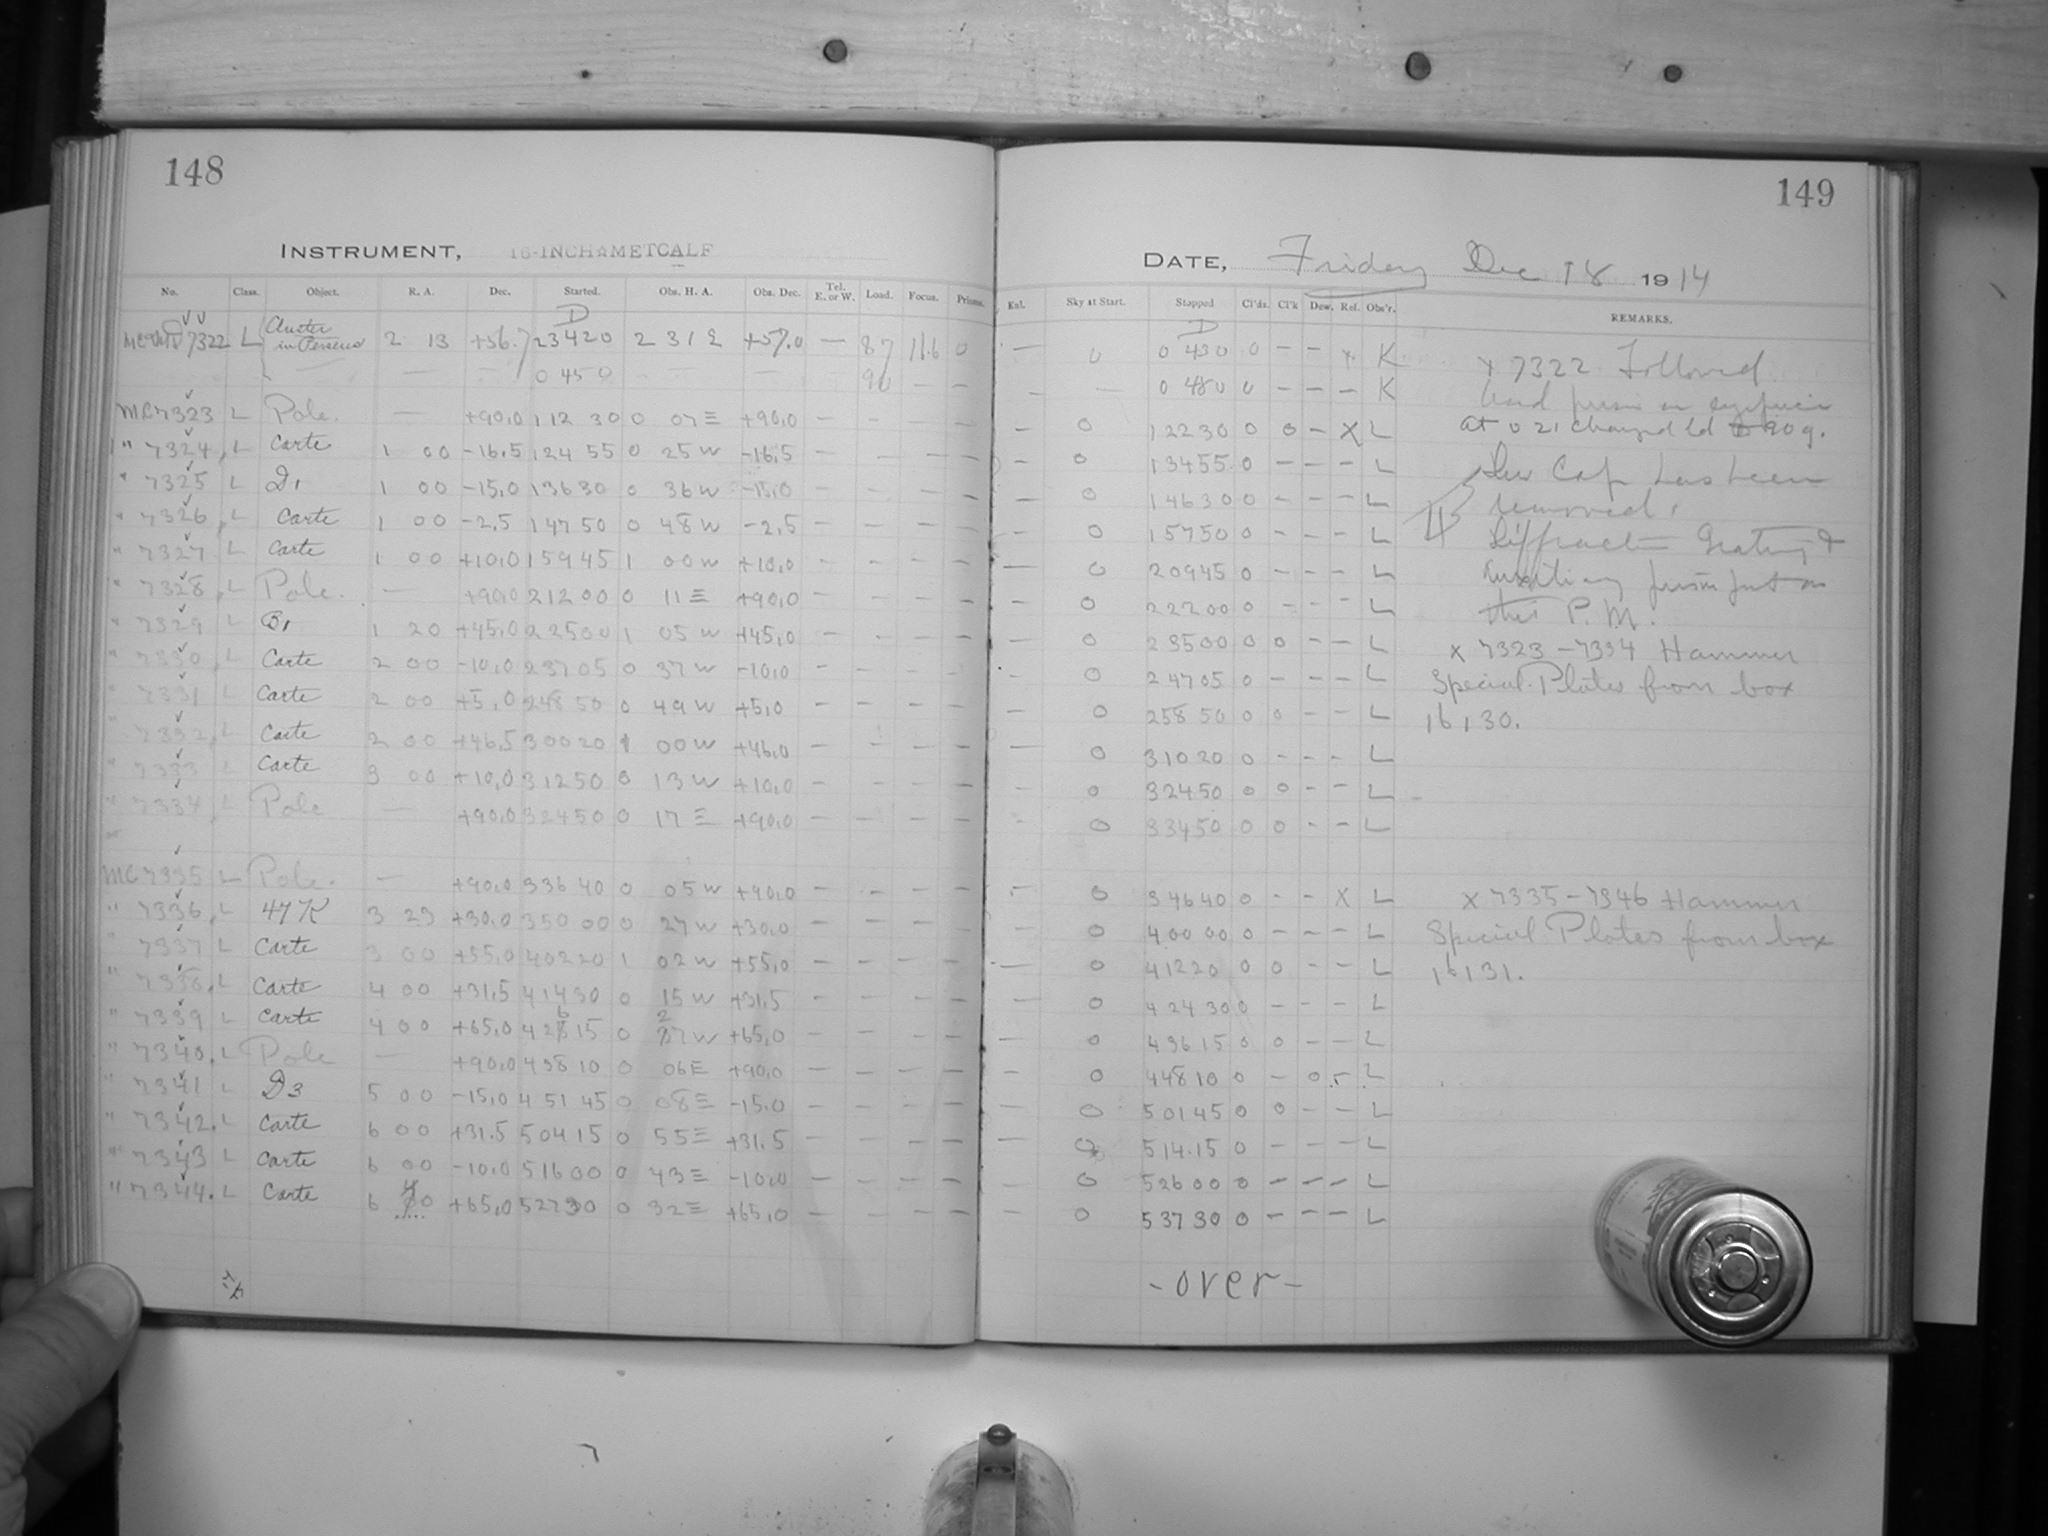 148
INSTRUMENT, 16-INCH METCALF
No. Class. Object. R. A. Dec. Started. Obs. H. A. Obs. Dec. Tel. E. or W. Load. Focus. Prisms.
D
7322 L Cluster in Perseus 2 13 +56.7 23 42 0 2 31 E +57.0 — 87 11.6 0
— — 0 45 0 — — 90 — —
MC 7323 L Pole. — +90.0 1 12 30 0 07 E +90.0 — — — —
" 7324 L Carte 1 00 -16.5 1 24 55 0 25 W -16.5 — — — —
" 7325 L D1 1 00 -15.0 1 36 30 0 36 W -15.0 — — — —
" 7326 L Carte 1 00 -2.5 1 47 50 0 48 W -2.5 — — — —
" 7327 L Carte 1 00 +10.0 1 59 45 1 00 W +10.0 — — — —
" 7328 L Pole. — +90.0 2 12 00 0 11 E +90.0 — — — —
" 7329 L B1 1 20 +45.0 2 25 00 1 05 W +45.0 — — — —
" 7330 L Carte 2 00 -10.0 2 37 05 0 37 W -10.0 — — — —
" 7331 L Carte 2 00 +5.0 2 48 50 0 49 W +5.0 — — — —
" 7332 L Carte 2 00 +46.5 3 00 20 1 00 W +46.0 — — — —
" 7333 L Carte 3 00 +10.0 3 12 50 0 13 W +10.0 — — — —
" 7334 L Pole — +90.0 3 24 50 0 17 E +90.0 — — — —
MC 7335 L Pole. — +90.0 3 36 40 0 05 W +90.0 — — — —
" 7336 L 47 K 3 23 +30.0 3 50 00 0 27 W +30.0 — — — —
" 7337 L Carte 3 00 +55.0 4 02 20 1 02 W +55.0 — — — —
" 7338 L Carte 4 00 +31.5 4 14 30 0 15 W +31.5 — — — —
" 7339 L Carte 4 00 +65.0 4 26 15 0 27 W +65.0 — — — —
" 7340 L Pole — +90.0 4 38 10 0 06 E +90.0 — — — —
" 7341 L D3 5 00 -15.0 4 51 45 0 08 E -15.0 — — — —
" 7342 L Carte 6 00 +31.5 5 04 15 0 55 E +31.5 — — — —
" 7343 L Carte 6 00 -10.0 5 16 00 0 43 E -10.0 — — — —
" 7344 L Carte 6 00 +65.0 5 27 30 0 32 E +65.0 — — — —
149
DATE, Friday Dec 18 1914
Exl. Sky at Start. Stopped Cl'ds. Cl'k Dew. Ref. Obs'r. REMARKS.
D
— 0 0 43 0 0 — — x K x 7322 Followed
— — 0 48 0 0 — — — K hand prism on eyepiece
— 0 1 22 30 0 0 — X L at 0 21 changed ld to 90 g.
— 0 1 34 55 0 — — — L Dew Cap has been
— 0 1 46 30 0 — — — L removed.
— 0 1 57 50 0 — — — L Diffraction Grating &
— 0 2 09 45 0 — — — L auxiliary prism put on
— 0 2 22 00 0 — — — L this P.M.
— 0 2 35 00 0 0 — — L x 7323 - 7334 Hammer
— 0 2 47 05 0 — — — L Special Plates from box
— 0 2 58 50 0 0 — — L 16130.
— 0 3 10 20 0 — — — L
— 0 3 24 50 0 0 — — L
— 0 3 34 50 0 0 — — L
— 0 3 46 40 0 — — X L x 7335 - 7346 Hammer
— 0 4 00 00 0 — — — L Special Plates from box
— 0 4 12 20 0 0 — — L 16131.
— 0 4 24 30 0 — — — L
— 0 4 36 15 0 0 — — L
— 0 4 48 10 0 — 0 — L
— 0 5 01 45 0 0 — — L
— 0 5 14 15 0 — — — L
— 0 5 26 00 0 — — — L
— 0 5 37 30 0 — — — L
- over -